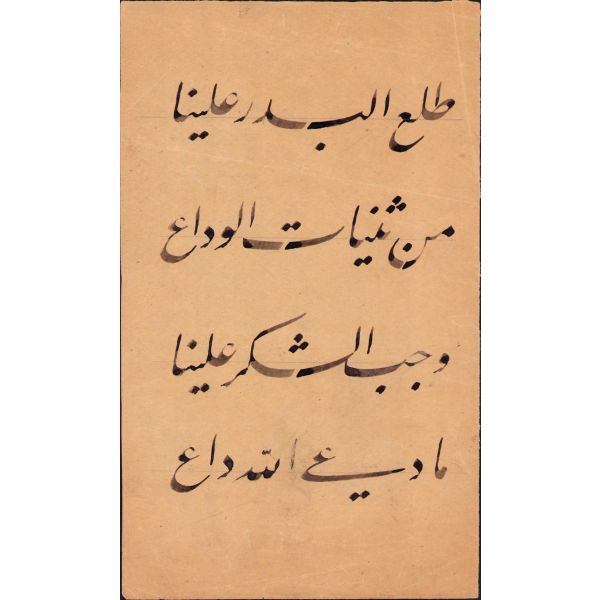 طلع البدر علينا
من ثنيات الوداع
وجب الشكر علينا
ما دعى الله داع